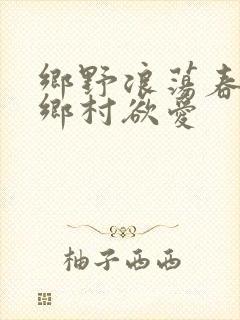 鄉野浪蕩春
鄉村欲愛
柚子西西